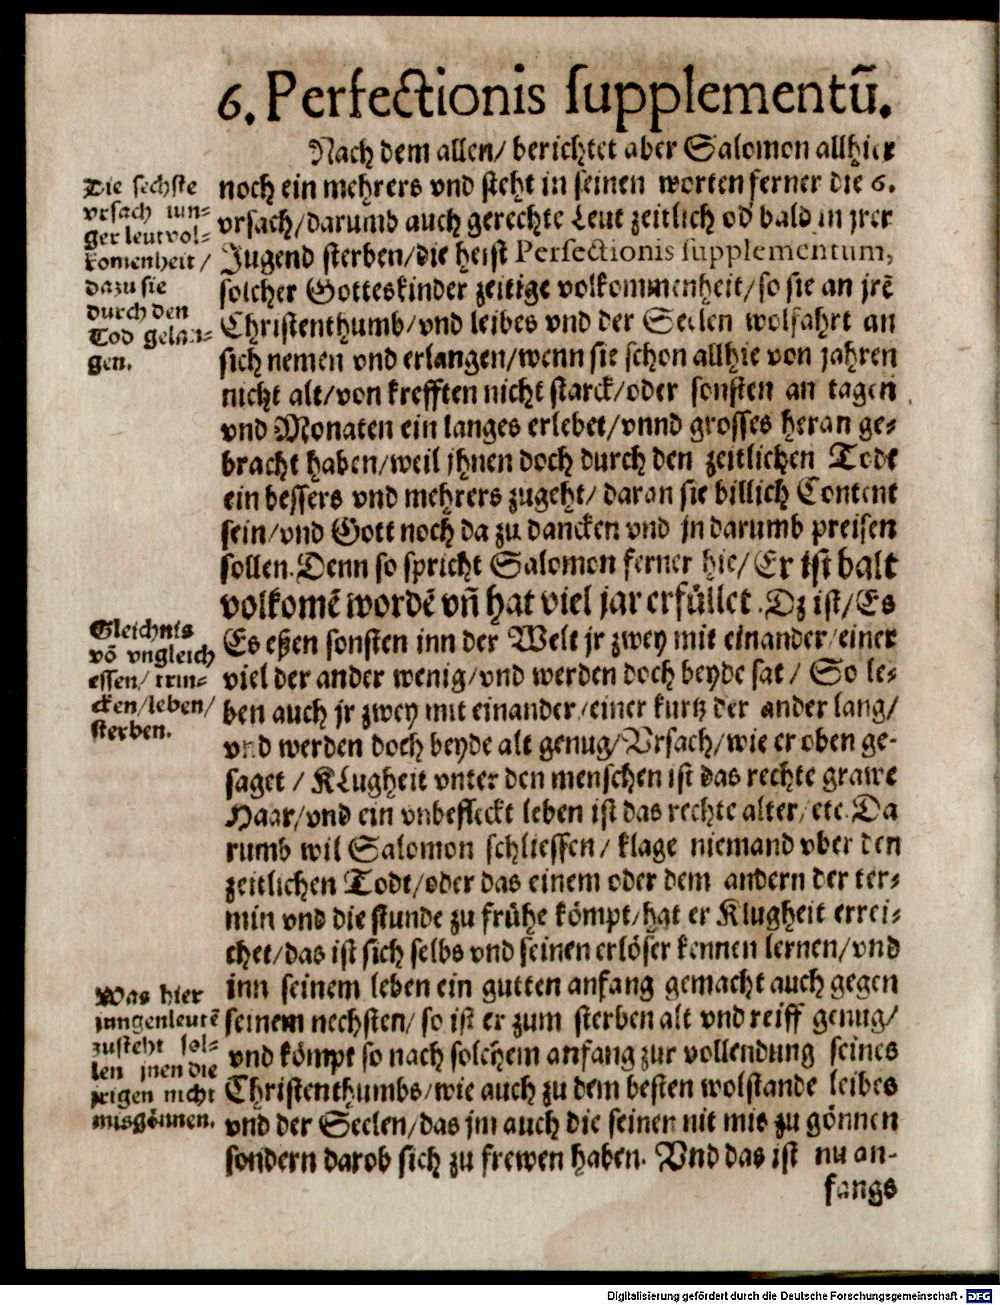 6. Perfectionis ſupplementū.
Nach dem allen/ berichtet aber Salomon allhier
noch ein mehrers vnd ſteht in ſeinen worten ferner die 6.
vrſach/darumb auch gerechte Leut zeitlich od bald in jrer
Jugend ſterben/die heiſt Perfectionis ſupplementum,
ſolcher Gotteskinder zeitige volkommenheit/ſo ſie an jrē
Chriſtenthumb/vnd leibes vnd der Seelen wolfahrt an
ſich nemen vnd erlangen/wenn ſie ſchon allhie von jahren
nicht alt/von krefften nicht ſtarck/oder ſonſten an tagen
vnd Monaten ein langes erlebet/vnnd groſſes heran ge⸗
bracht haben/weil jhnen doch durch den zeitlichen Todt
ein beſſers vnd mehrers zugeht/ daran ſie billich Content
ſein/vnd Gott noch da zu dancken vnd jn darumb preiſen
ſollen. Denn ſo ſpricht Salomon ferner hie/ Er iſt balt
volkomē wordē vñ hat viel jar erfüllet. Dz iſt/Es
Es eßen ſonſten inn der Welt jr zwey mit einander/einer
viel der ander wenig/vnd werden doch beyde ſat/ So le⸗
ben auch jr zwey mit einander/einer kurtz der ander lang/
vnd werden doch beyde alt genug/Vrſach/wie er oben ge-
ſaget / KLugheit vnter den menſchen iſt das rechte grawe
Haar/vnd ein vnbefleckt leben iſt das rechte alter/ etc. Da
rumb wil Salomon ſchlieſſen/ klage niemand vber den
zeitlichen Todt/oder das einem oder dem andern der ter⸗
min vnd die ſtunde zu frühe kömpt/hat er Klugheit errei⸗
chet/das iſt ſich ſelbs vnd ſeinen erlöſer kennen lernen/vnd
inn ſeinem leben ein gutten anfang gemacht auch gegen
ſeinem nechſten/ ſo iſt er zum ſterben alt vnd reiff genug/
vnd kömpt ſo nach ſolchem anfang zur vollendung ſeines
Chriſtenthumbs/wie auch zu dem beſten wolſtande leibes
vnd der Seelen/das jm auch die ſeinen nit mis zu gönnen
ſondern darob ſich zu frewen haben. Vnd das iſt nu an-
fangs
Die ſechſte
vrſach iun⸗
ger leut vol⸗
komenheit/
dazu ſie
durch den
Tod gelan⸗
gen.
Gleichnis
vō vngleich
eſſen/ trin⸗
cken/leben/
ſterben.
Was hier
jungenleutē
zuſteht ſol⸗
len jnen die
jrigen nicht
misgönnen.
Digitalisierung gefördert durch die Deutsche Forschungsgemeinschaft - DFG